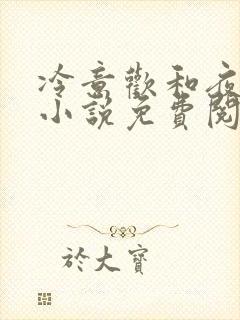 冷意歡和夜
小說免費閱
於大寶